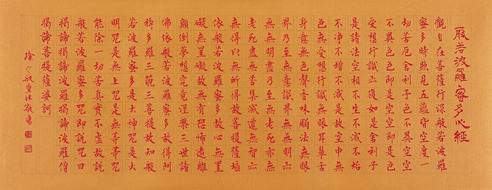 般若波羅蜜多心經
觀自在菩薩行深般若波羅
蜜多時照見五蘊皆空度一
切苦厄舍利子色不異空空
不異色色即是空空即是色
受想行識亦復如是舍利子
是諸法空相不生不滅不垢
不淨不增不減是故空中無
色無受想行識無眼耳鼻舌
身意無色聲香味觸法無眼
界乃至無意識界無無明亦
無無明盡乃至無老死亦無
老死盡無苦集滅道無智亦
無得以無所得故菩提薩埵
依般若波羅蜜多故心無罣
礙無罣礙故無有恐怖遠離
顛倒夢想究竟涅槃三世諸
佛依般若波羅蜜多故得阿
耨多羅三藐三菩提故知般
若波羅蜜多是大神咒是大
明咒是無上咒是無等等咒
能除一切苦真實不虛故說
般若波羅蜜多咒即說咒曰
揭諦揭諦波羅揭諦波羅僧
揭諦菩提薩婆訶